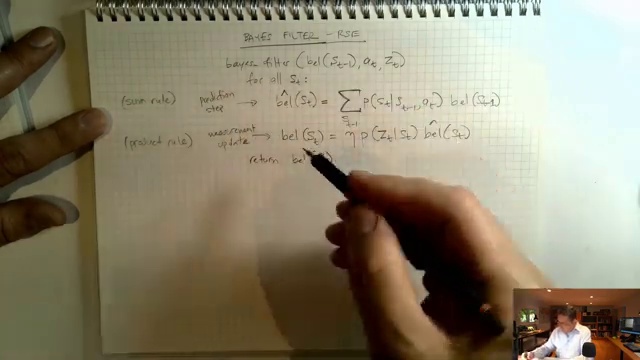 BAYES FILTER - RSE
bayes filter (bel(S_{t-1}), a_t, Z_t)
for all S_t:
(sum rule) prediction step → b̂el(S_t) = Σ_{S_{t-1}} p(S_t|S_{t-1}, a_t) bel(S_{t-1})
(product rule) measurement update → bel(S_t) = η p(Z_t|S_t) b̂el(S_t)
return bel